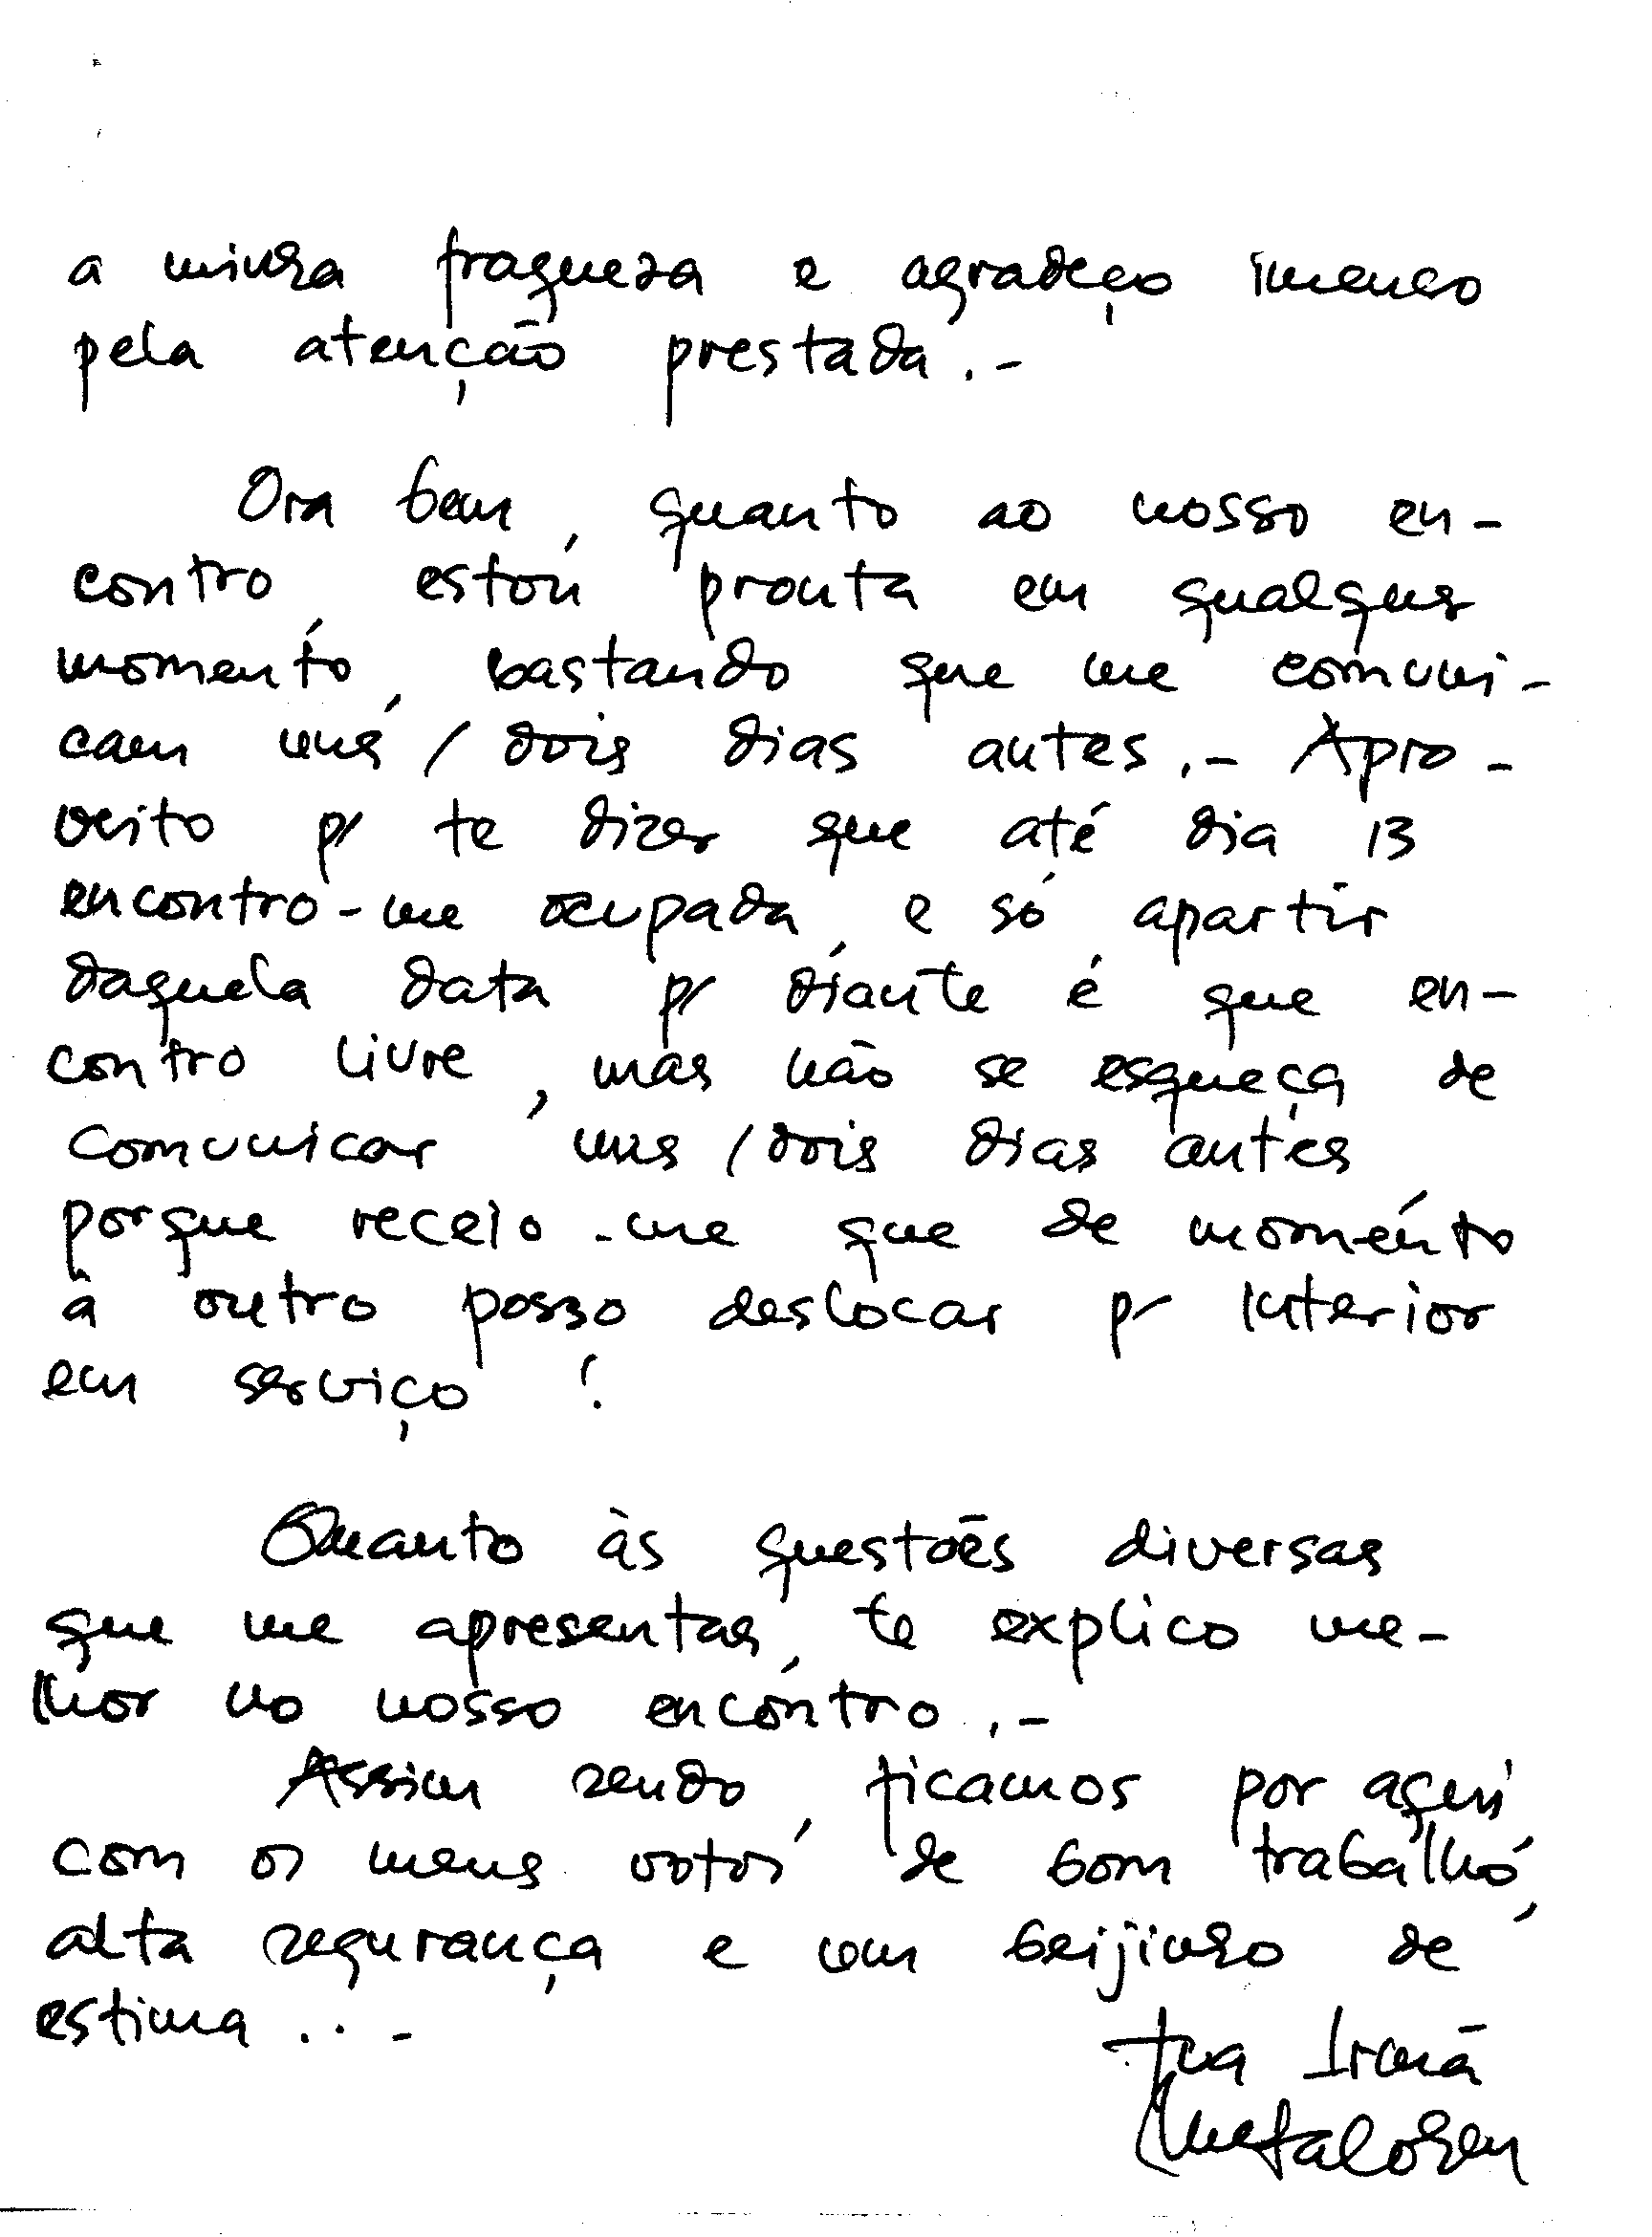 a minha fraqueza e agradeço imenso
pela atenção prestada.-
Ora bem, quanto ao nosso en-
contro, estou pronta em qualquer
momento, bastando que me comuni-
cam uns / dois dias antes.- Apro-
veito p/ te dizer que até dia 13
encontro-me ocupada, e só apartir
daquela data p/ diante é que en-
contro livre, mas não se esqueça de
comunicar uns / dois dias antes
porque receio-me que de momento
à outro posso deslocar p/ Interior
em serviço!
Quanto às questões diversas
que me apresentas, te explico me-
lhor no nosso encontro.-
Assim sendo, ficamos por aqui
com os meus votos de bom trabalho,
alta segurança e um beijinho de
estima...-
tua Irmã